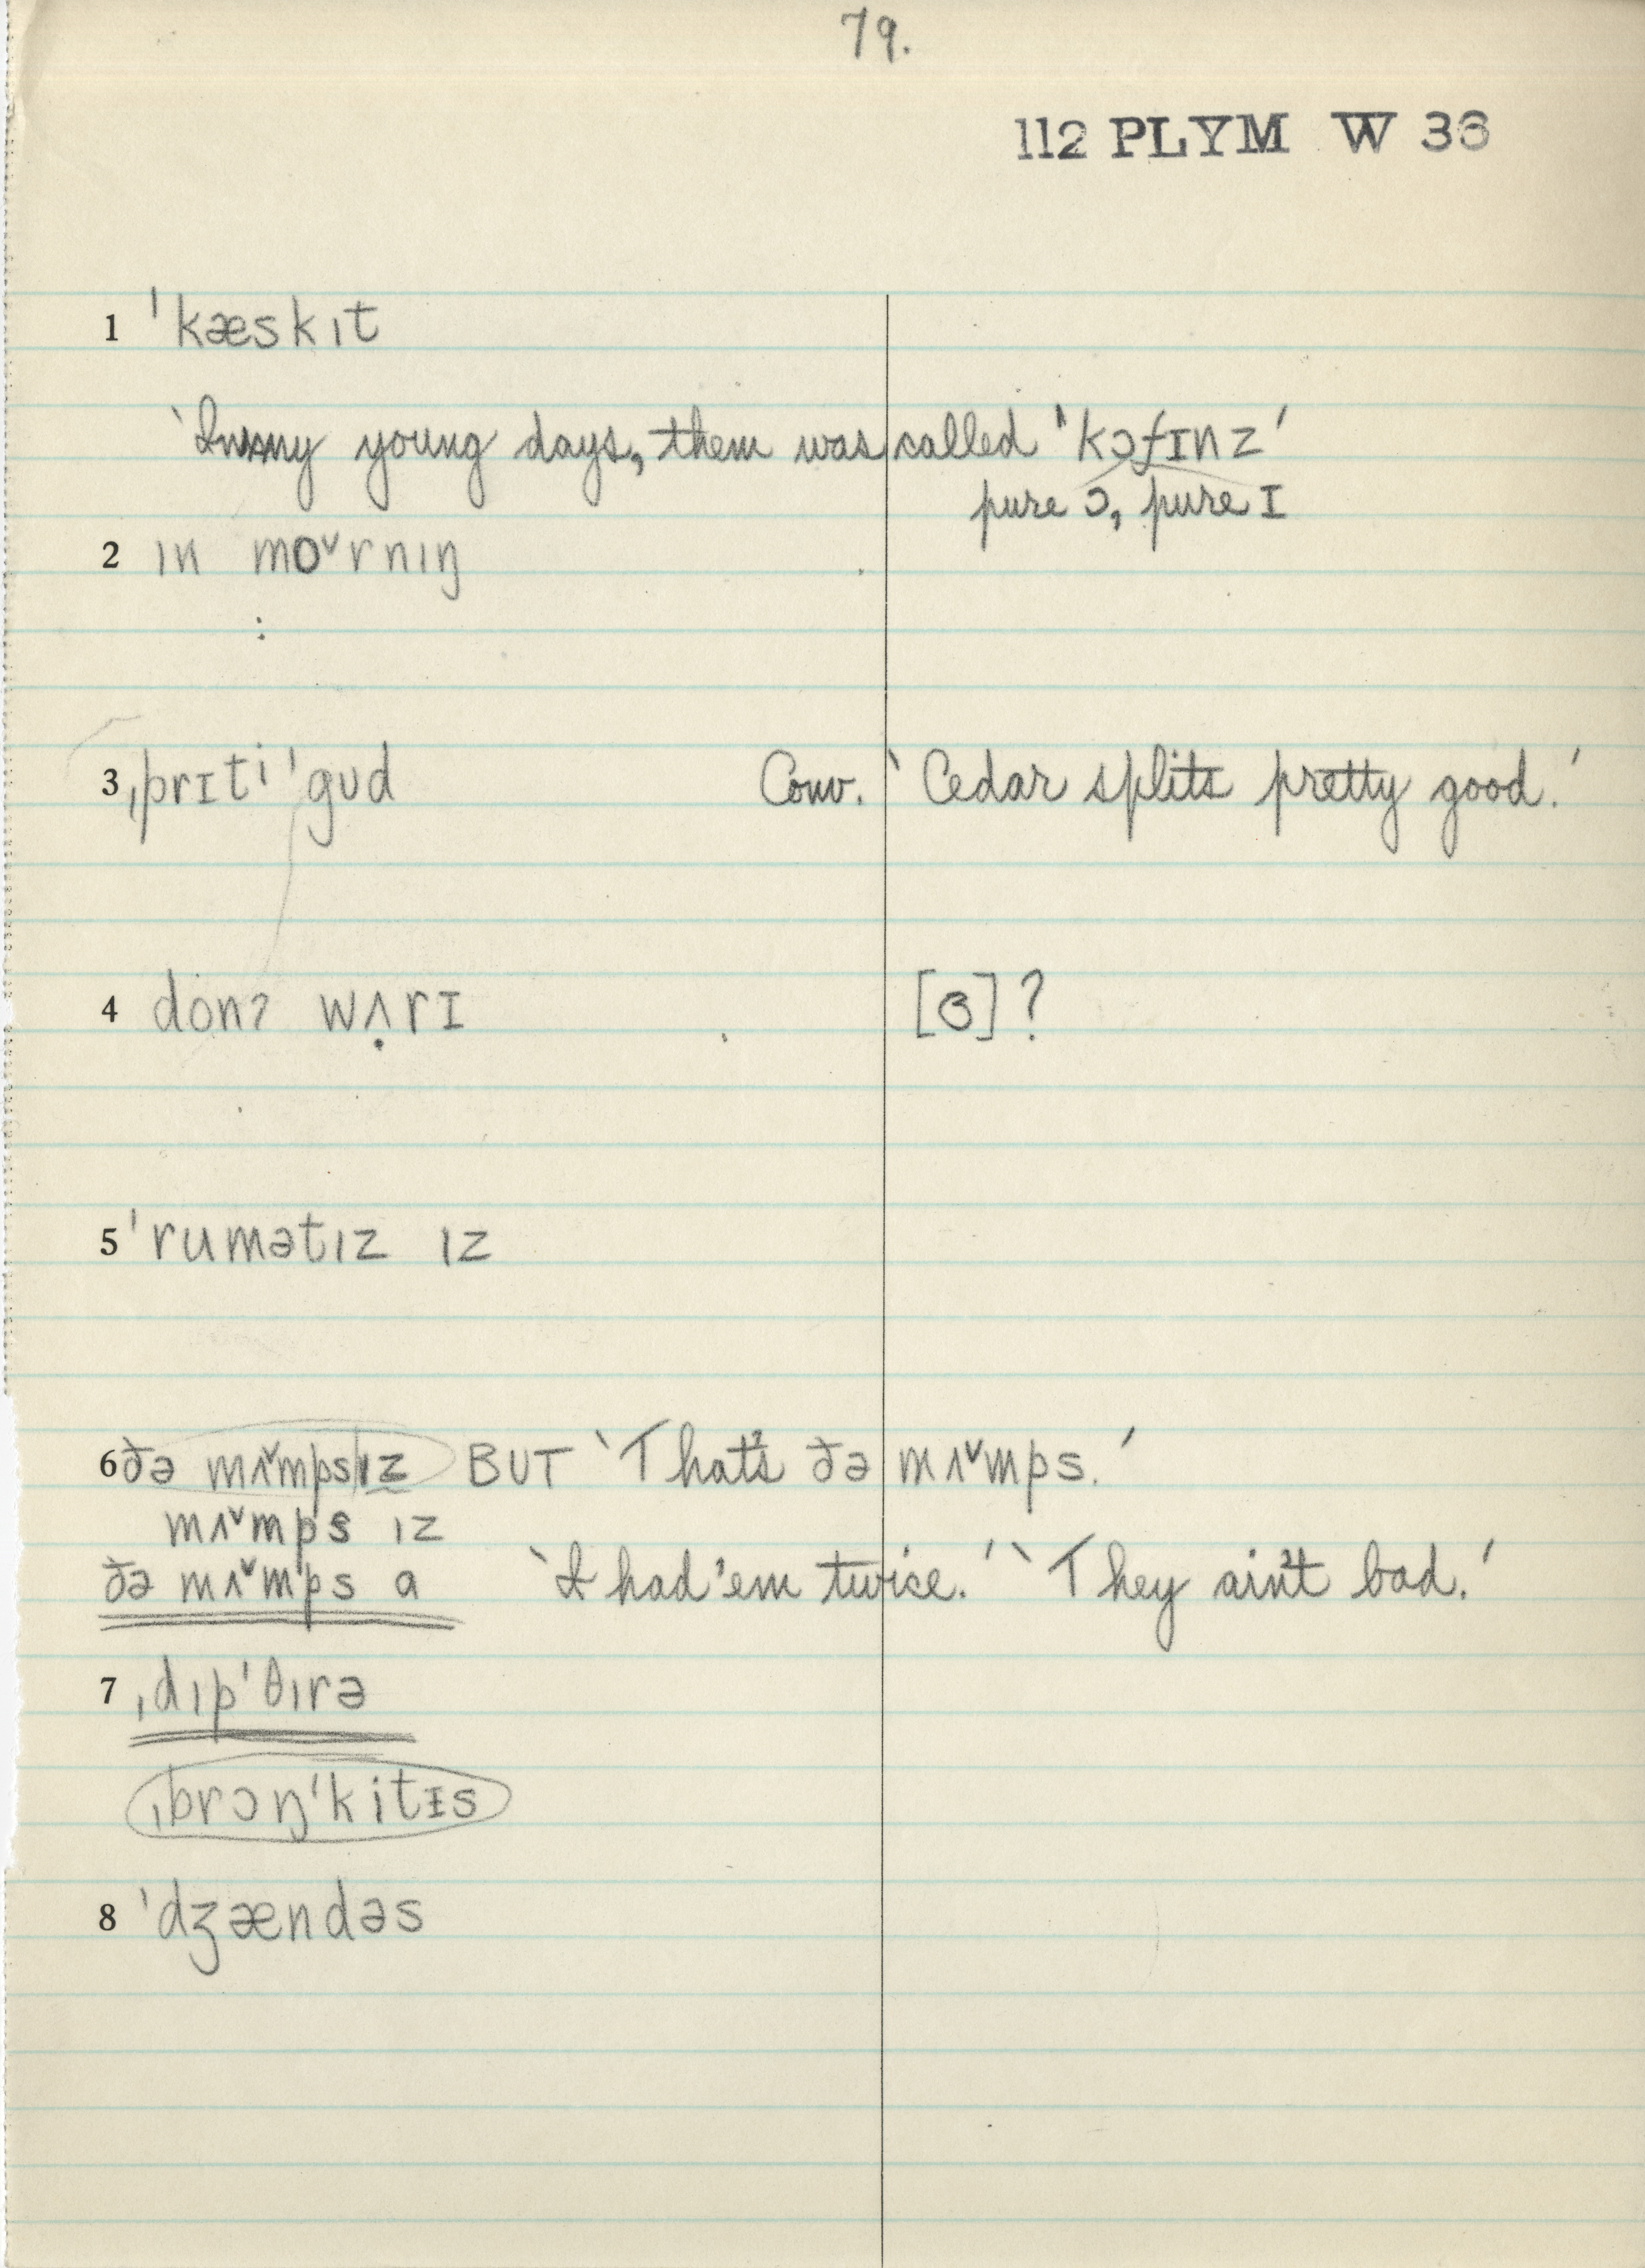 79.
112 PLYM W 36
1 ˈkæskɪt
‘In my young days, them was called ˈkɔfɪnz’
pure ɔ, pure ɪ
2 ɪn mo˅rnɪŋ
3 ˌprɪti ˈgʊd Conv. ‘Cedar splits pretty good.’
4 donʔ wʌ̣rɪ [ɞ]?
5 ˈrumətɪz ɪz
6 ðə mʌ˅mps|ɪz BUT ‘That's ðə mʌ˅mps.’
mʌ˅mps ɪz
ðə mʌ˅mps a ‘I had 'em twice.’ ‘They ain't bad.’
7 ˌdɪpˈθɪrə
ˌbrɔŋˈkitɪs
8 ˈdʒændəs